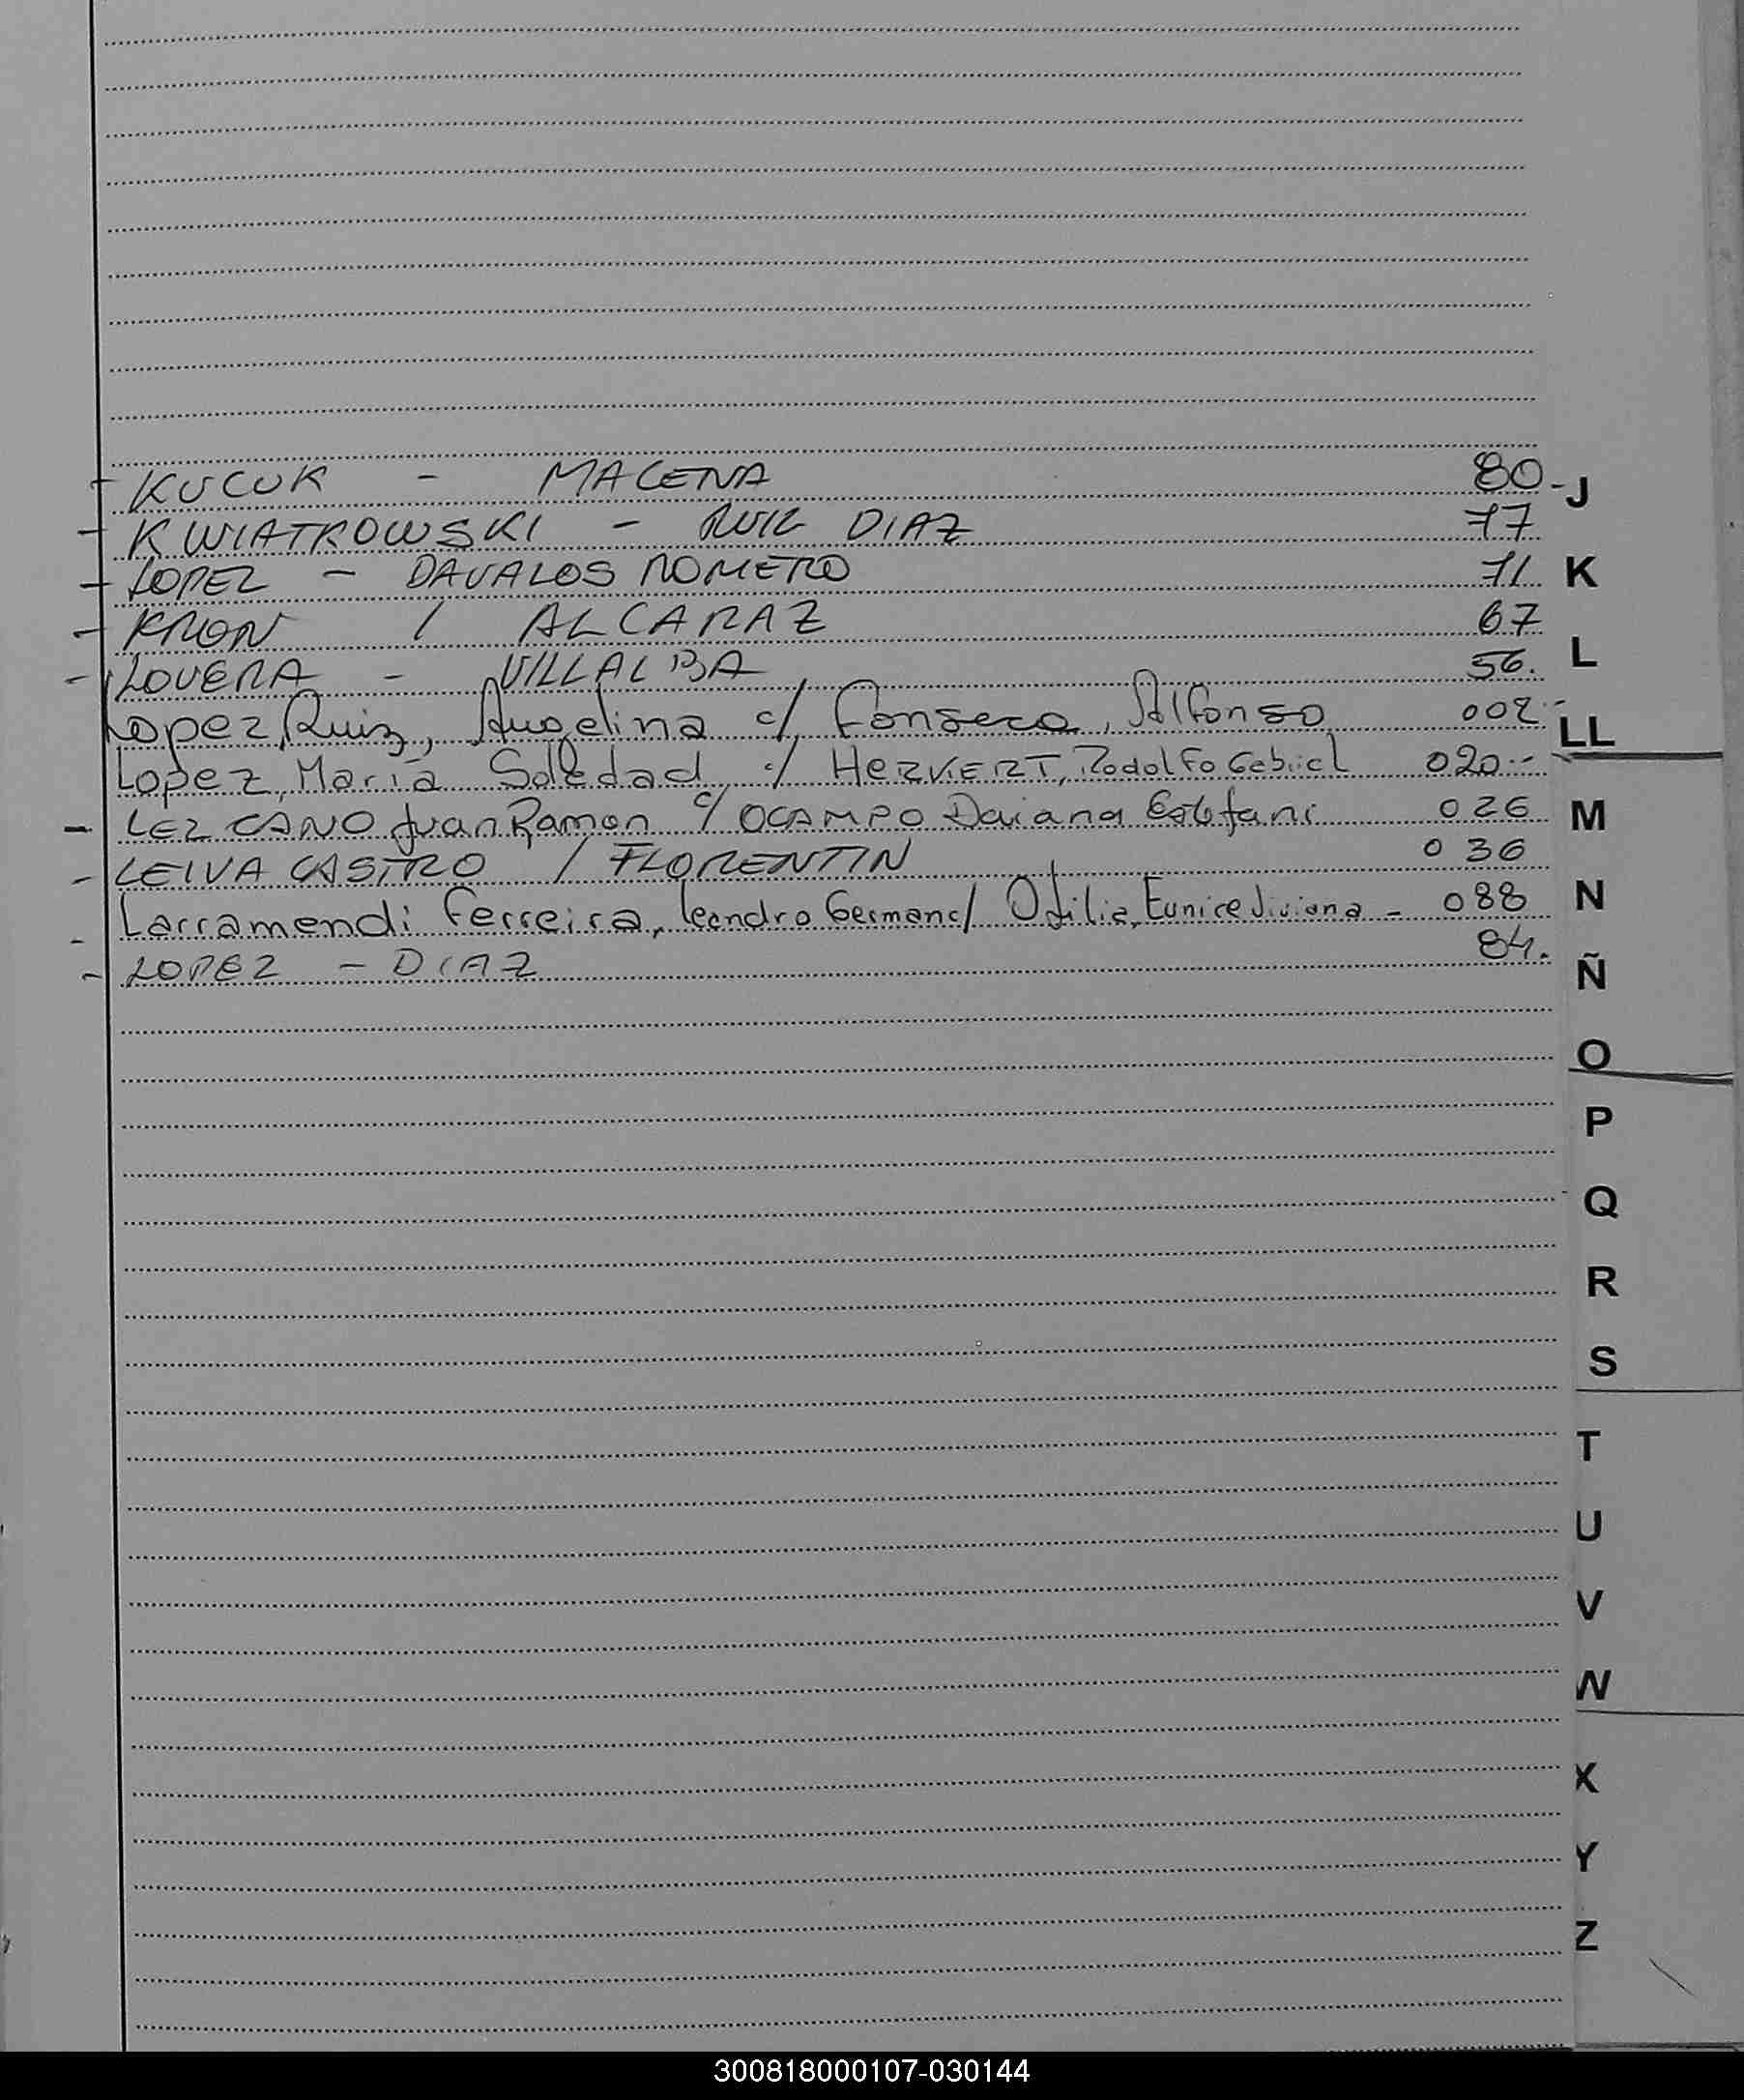 - KUCUK - MACENA 80-
- KWIATKOWSKI - RUIZ DIAZ 77
- LOPEZ - DAVALOS ROMERO 71
- KRON / ALCARAZ 67
- LOVERA - VILLALBA 56.
Lopez Ruiz, Angelina c/ Fonseca, Alfonso 002-
Lopez, María Soledad c/ HERVERT, Rodolfo Gabriel 020--
- LEZCANO Juan Ramon c/ OCAMPO Daiana Estefani 026
- LEIVA CASTRO / FLORENTIN 036
- Larramendi Ferreira, Leandro German c/ Otilia, Eunice Viviana - 088
- LOPEZ - DIAZ 84.
J
K
L
LL
M
N
Ñ
O
P
Q
R
S
T
U
V
W
X
Y
Z
300818000107-030144